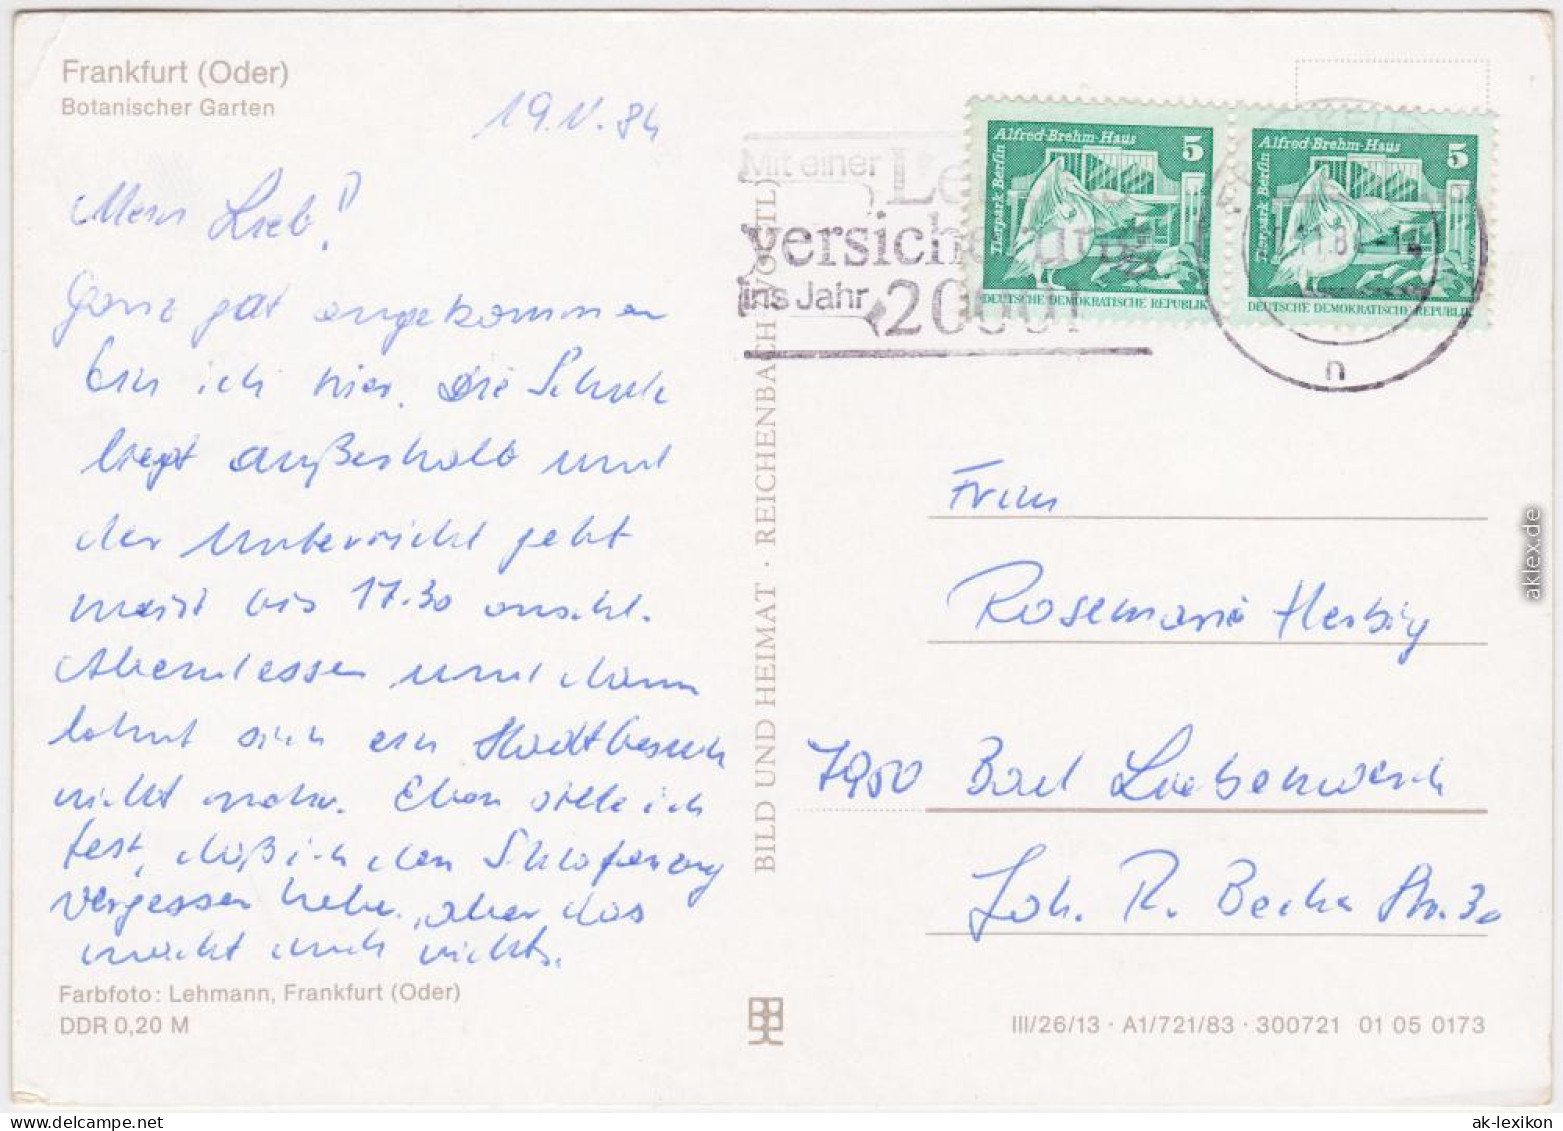 Frankfurt (Oder)
Botanischer Garten
19.V.84
Mein Lieb!
Ganz gut angekommen
bin ich hier. Die Schule
liegt außerhalb und
der Unterricht geht
meist bis 17.30
Abendessen und dann
lohnt sich ein Stadtbesuch
nicht mehr. Eben stelle ich
fest, daß ich den Schlafanzug
vergessen habe, aber das
macht auch nichts.
Farbfoto: Lehmann, Frankfurt (Oder)
DDR 0,20 M
BILD UND HEIMAT · REICHENBACH (VOGTL)
Mit einer
versicherung
ins Jahr 2000!
Alfred-Brehm-Haus 5
Tierpark Berlin
DEUTSCHE DEMOKRATISCHE REPUBLIK
Alfred-Brehm-Haus 5
Tierpark Berlin
DEUTSCHE DEMOKRATISCHE REPUBLIK
n
Frau
Rosemarie Herbig
7950 Bad Liebenwerda
Joh. R. Becher Str. 30
III/26/13 · A1/721/83 · 300721 01 05 0173
aklex.de
ak-lexikon